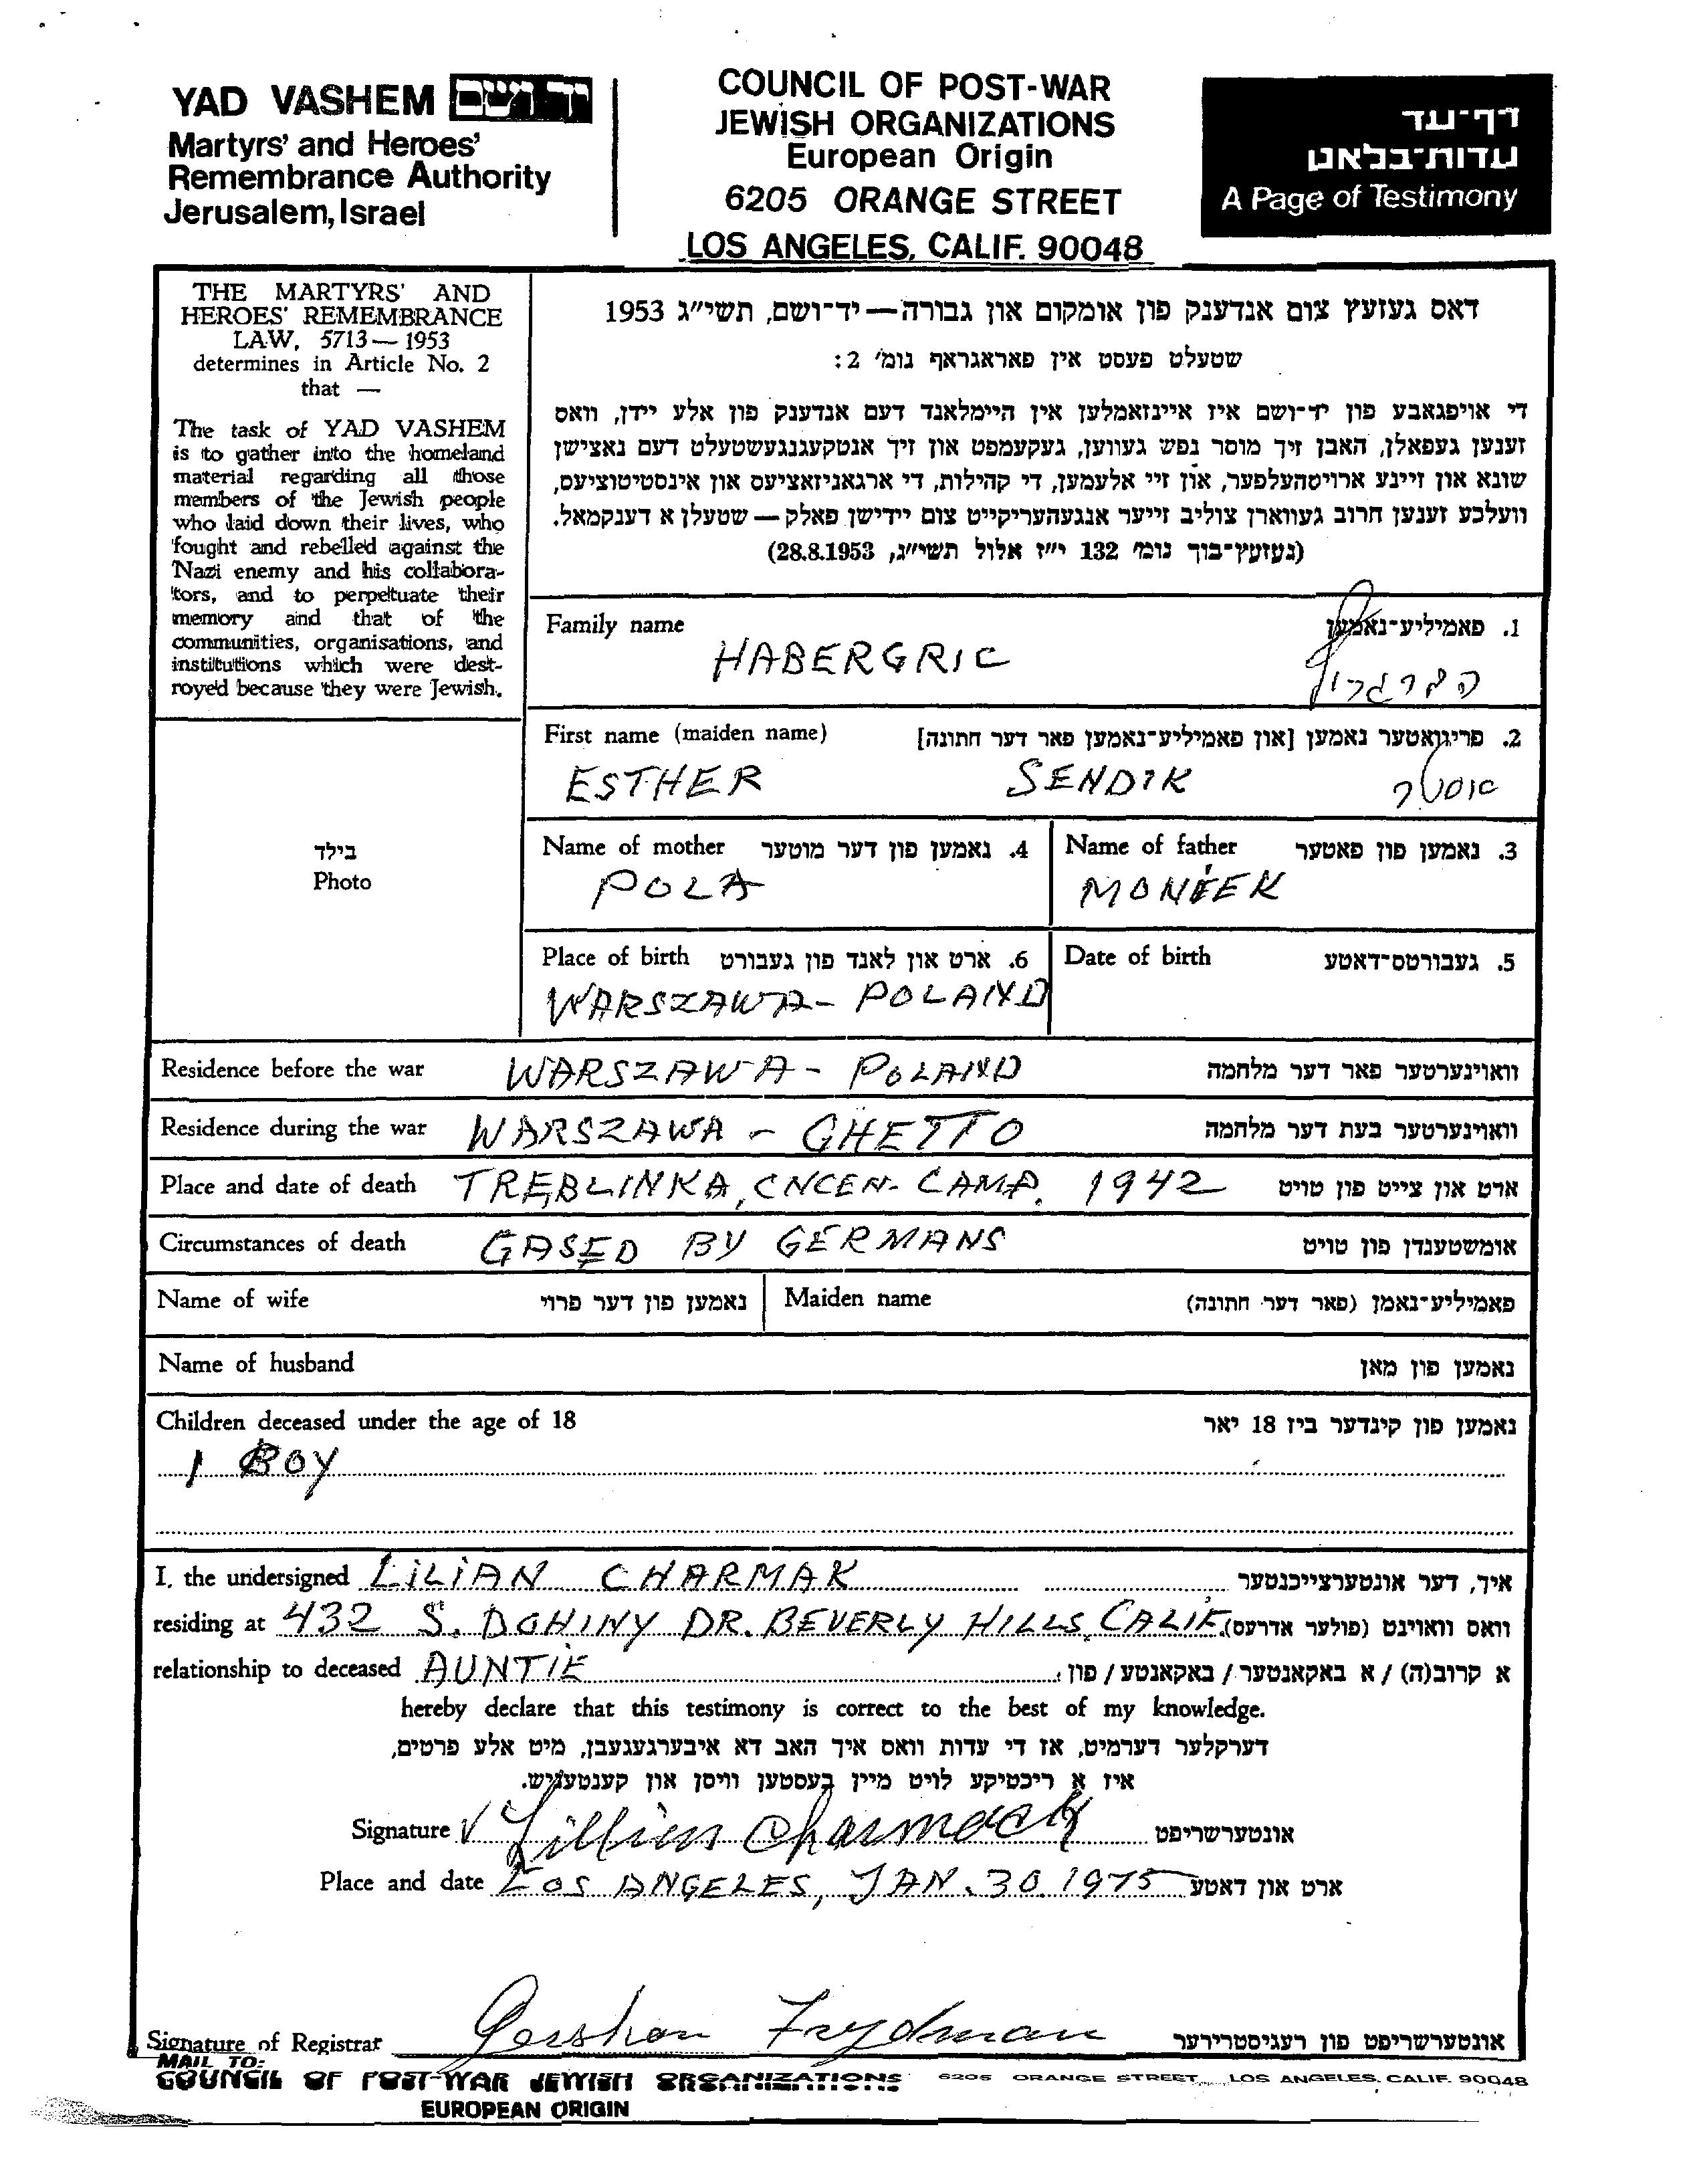 YAD VASHEM יד ושם
Martyrs' and Heroes'
Remembrance Authority
Jerusalem, Israel
COUNCIL OF POST-WAR
JEWISH ORGANIZATIONS
European Origin
6205 ORANGE STREET
LOS ANGELES, CALIF. 90048
דף-עד
עדות-בלאט
A Page of Testimony
THE MARTYRS' AND
HEROES' REMEMBRANCE
LAW, 5713—1953
determines in Article No. 2
that —
The task of YAD VASHEM
is to gather into the homeland
material regarding all those
members of the Jewish people
who laid down their lives, who
fought and rebelled against the
Nazi enemy and his collabora-
tors, and to perpetuate their
memory and that of the
communities, organisations, and
institutions which were dest-
royed because they were Jewish.
דאס געזעץ צום אנדענק פון אומקום און גבורה — יד-ושם, תשי״ג 1953
שטעלט פעסט אין פאראגראף נומ׳ 2:
די אויפגאבע פון יד-ושם איז איינזאמלען אין היימלאנד דעם אנדענק פון אלע יידן, וואס
זענען געפאלן, האבן זיך מוסר נפש געווען, געקעמפט און זיך אנטקעגנגעשטעלט דעם נאצישן
שונא און זיינע ארויסהעלפער, און זיי אלעמען, די קהילות, די ארגאניזאציעס און אינסטיטוציעס,
וועלכע זענען חרוב געווארן צוליב זייער אנגעהעריקייט צום יידישן פאלק — שטעלן א דענקמאל.
(געזעץ-בוך נומ׳ 132 י״ז אלול תשי״ג, 28.8.1953)
Family name 1. פאמיליע-נאמען
HABERGRIC
First name (maiden name) 2. פריוואטער נאמען [און פאמיליע-נאמען פאר דער חתונה]
ESTHER SENDIK אסטר
Name of mother 4. נאמען פון דער מוטער Name of father 3. נאמען פון פאטער
POLA MONIEK
Place of birth 6. ארט און לאנד פון געבורט Date of birth 5. געבורטס-דאטע
WARSZAWA - POLAND
בילד
Photo
Residence before the war WARSZAWA - POLAND וואוינערטער פאר דער מלחמה
Residence during the war WARSZAWA - GHETTO וואוינערטער בעת דער מלחמה
Place and date of death TREBLINKA, CNCEN- CAMP. 1942 ארט און צייט פון טויט
Circumstances of death GASED BY GERMANS אומשטענדן פון טויט
Name of wife נאמען פון דער פרוי Maiden name פאמיליע-נאמן (פאר דער חתונה)
Name of husband נאמען פון מאן
Children deceased under the age of 18 נאמען פון קינדער ביז 18 יאר
1 BOY
I, the undersigned LILIAN CHARMAK איך, דער אונטערצייכנטער
residing at 432 S. DOHINY DR. BEVERLY HILLS, CALIF. וואס וואוינט (פולער אדרעס)
relationship to deceased AUNTIE א קרוב(ה) / א באקאנטער / באקאנטע / פון:
hereby declare that this testimony is correct to the best of my knowledge.
דערקלער דערמיט, אז די עדות וואס איך האב דא איבערגעגעבן, מיט אלע פרטים,
איז א ריכטיקע לויט מיין בעסטען וויסן און קענטעניש.
Signature √ Lillian Charmack אונטערשריפט
Place and date LOS ANGELES, JAN. 30. 1975 ארט און דאטע
Signature of Registrar Gershon Frydman אונטערשריפט פון רעגיסטרירער
MAIL TO:
COUNCIL OF POST-WAR JEWISH ORGANIZATIONS 6205 ORANGE STREET, LOS ANGELES, CALIF. 90048
EUROPEAN ORIGIN